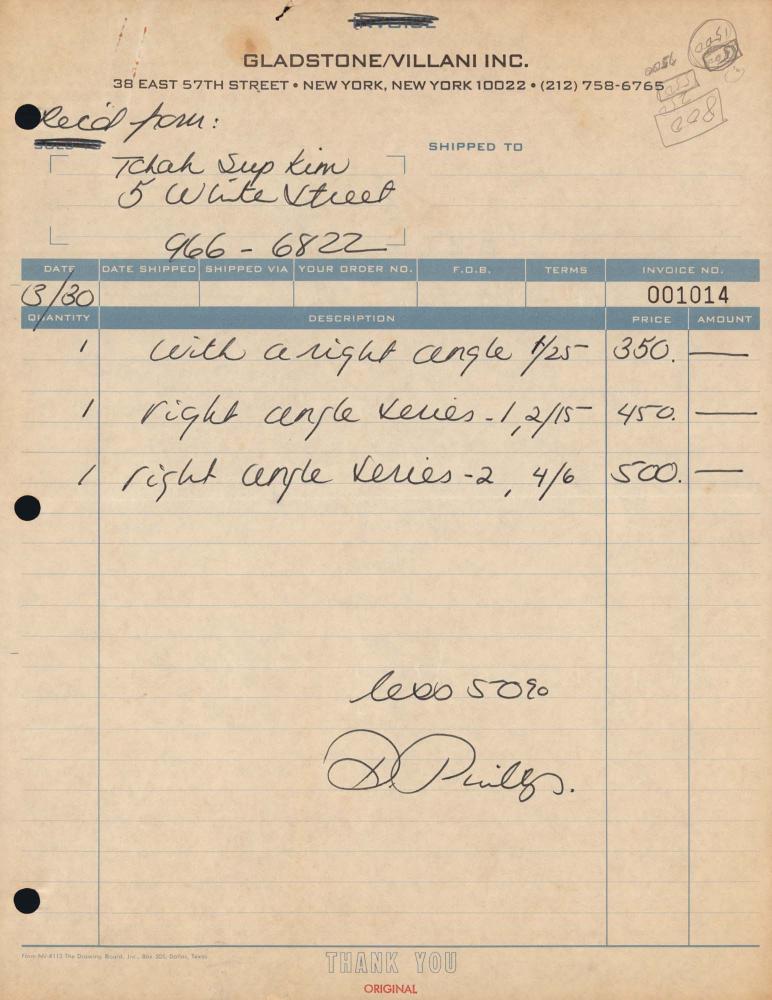 GLADSTONE/VILLANI INC.
38 EAST 57TH STREET • NEW YORK, NEW YORK 10022 • (212) 758-6765
Rec'd from:
SHIPPED TO
Tchah Sup Kim
5 White Street
966-6822
DATE DATE SHIPPED SHIPPED VIA YOUR ORDER NO. F.O.B. TERMS INVOICE NO.
3/30 001014
QUANTITY DESCRIPTION PRICE AMOUNT
1 with a right angle 1/25 350. —
1 right angle series-1, 2/15 450. —
1 right angle series-2, 4/6 500. —
less 50%
D. Phillips.
Form NV-R113 The Drawing Board, Inc., Box 505, Dallas, Texas
THANK YOU
ORIGINAL